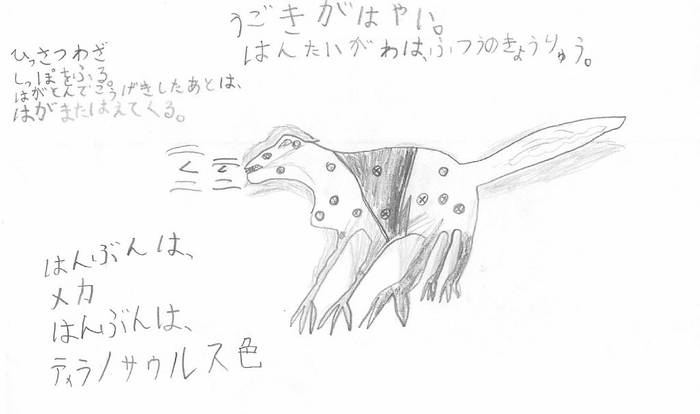 うごきがはやい。
はんたいがわは、ふつうのきょうりゅう。
ひっさつわざ
しっぽをふる。
はがとんでこうげきしたあとは、
はがまたはえてくる。
はんぶんは、
メカ
はんぶんは、
ティラノサウルス色